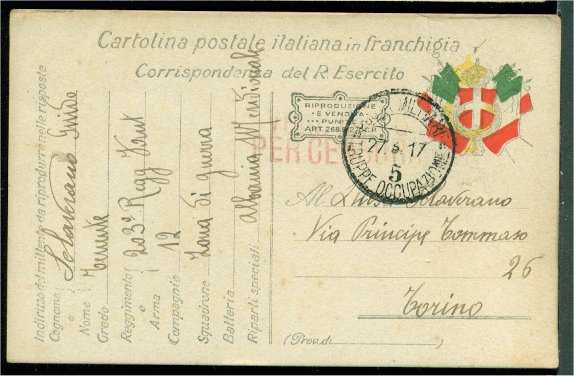 Cartolina postale italiana in franchigia
Corrispondenza del R. Esercito
RIPRODUZIONE
E VENDITA
PUNITE
ART. 268 E 274 C.P.
PER CENSURA
27 5 17
5
TRUPPE OCCUPAZIONE
Al Luigi Sclaverano
Via Principe Tommaso
26
Torino
(Prov. di )
Indirizzo del mittente da riprodursi nelle risposte
Cognome e Nome Sclaverano Guido
Grado Tenente
Reggimento e Arma 203° Regg Fant
Compagnia 12
Squadrone Zona di guerra
Batteria
Riparti speciali Albania Meridionale